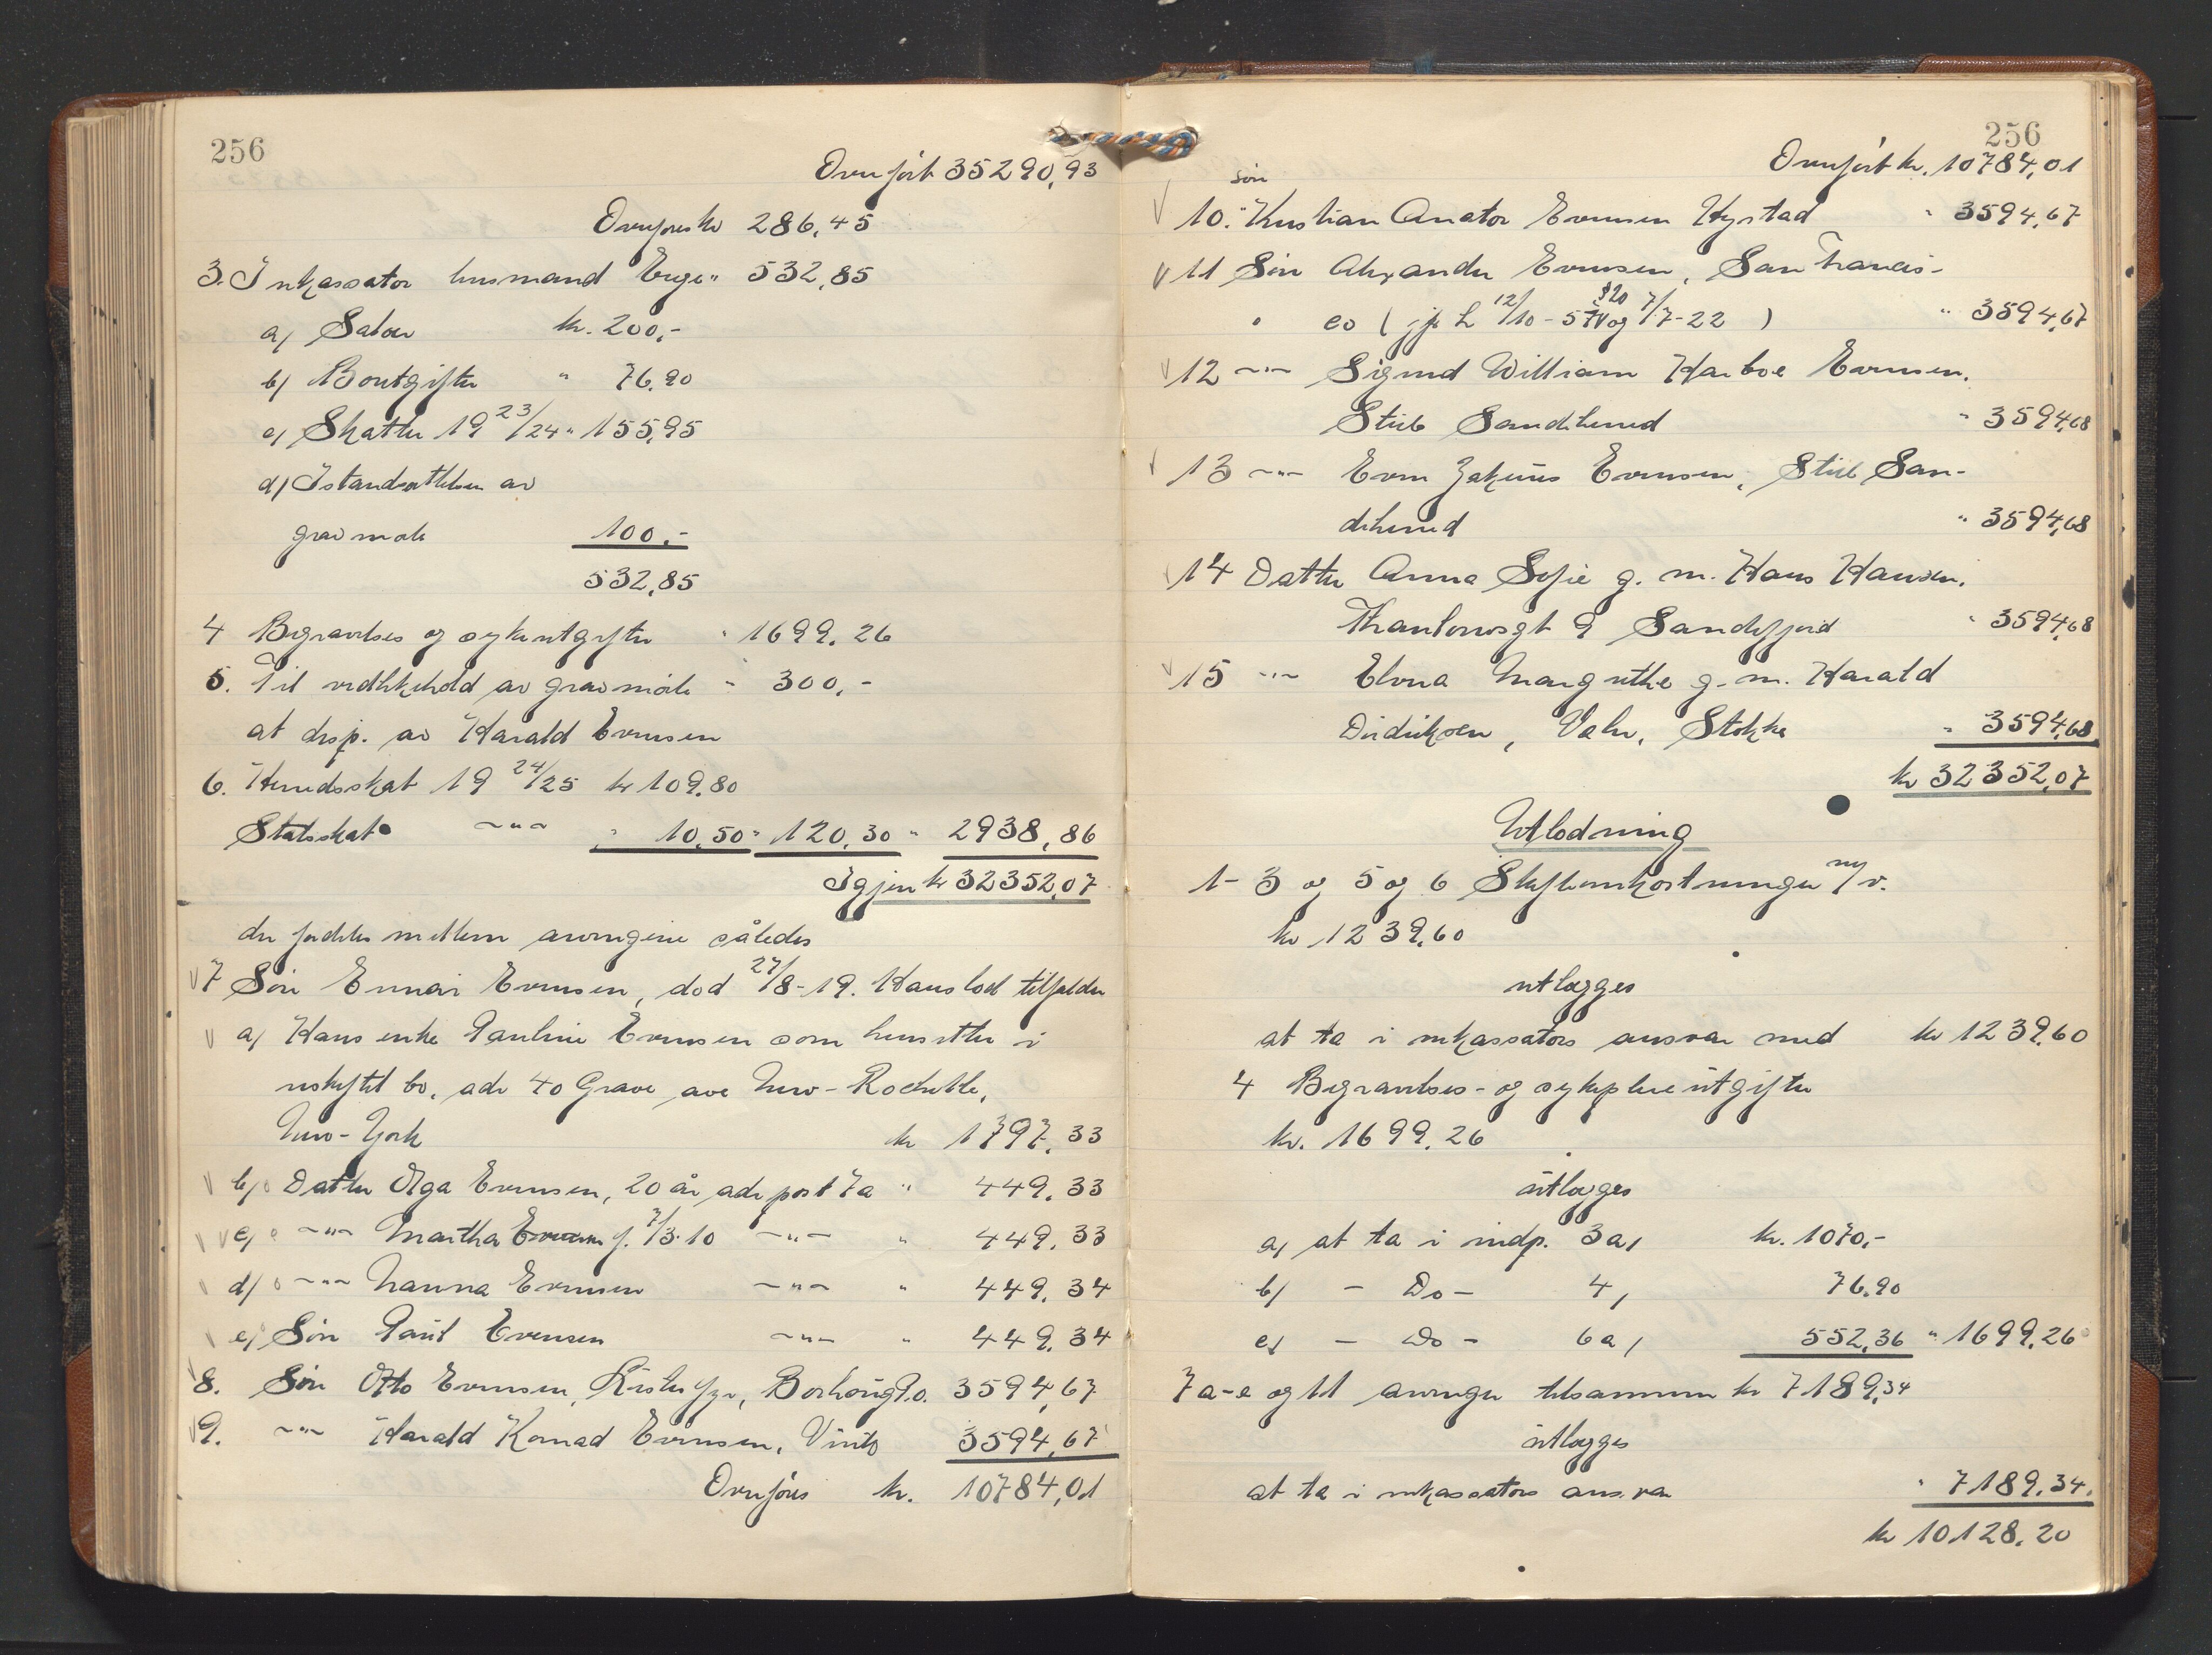 256
Overført 35290,93
Overføres kr 286,45
3. Inkassator husmand Enge " 532,85
a) Salær kr. 200,-
b) Boutgifter " 76.90
c) Skatter 19 23/24 " 155,95
d) Istandsættelse av
gravmæle 100.-
532,85
4 Begravelses og sykeutgifter " 1699.26
5. Til vedlikehold av gravmæle " 300,-
at disp. av Harald Evensen
6. Herredsskat 19 24/25 kr 109.80
Statsskat -"- " 10,50 " 120,30 " 2938,86
Igjen kr 32352,07
der fordeles mellem arvingene således
7 Søn Einnar Evensen, død 27/8-19. Hans lod tilfalder
a) Hans enke Pauline Evensen som hensitter i
uskiftet bo, adr 40 Grave ave New-Rochelle,
New-York kr 1797.33
b) Datter Olga Evensen, 20 år adr post 7a " 449.33
c) -"- Martha Evensen f. 7/3.10 -"- " 449.33
d) -"- Nanna Evensen -"- " 449.34
e) Søn Paul Evensen -"- " 449.34
8. Søn Otto Evensen, Borhaug P.o. 3594,67
9. -"- Harald Konrad Evensen, 3594,67
Overføres kr. 10784,01
256
Overført kr. 10784,01
søn
10. Kristian Anator Evensen Hystad " 3594,67
11 Søn Alexander Evensen, San Francis-
co ( jfr L 12/10-5 § 20 og 7/7-22 ) " 3594,67
12 -"- Sigurd William Harboe Evensen.
Stub Sandeherred " 3594,68
13 -"- Even Zakeus Evensen, Stub San-
deherred " 3594,68
14 Datter Anna Sofie g. m. Hans Hansen.
Thaulowsgt 9 Sandefjord " 3594,68
15 -"- Elvna Margrethe g. m. Harald
Didriksen, Valør, Stokke " 3594,68
kr 32352,07
Utlodning
1- 3 og 5 og 6 Skifteomkostninger m/v.
kr 1239,60
utlægges
at ta i inkassators ansvar med kr 1239,60
4 Begravelses- og sykepleieutgifter
kr. 1699.26
utlægges
a) at ta i indp. 3a, kr. 1070,-
b) - Do - 4, 76.90
c) - Do - 6a, 552,36 " 1699,26
7 a-e og 11 arvinger tilsammen kr 7189,34
utlægges
at ta i inkassators ansvar " 7189.34.
kr 10128.20